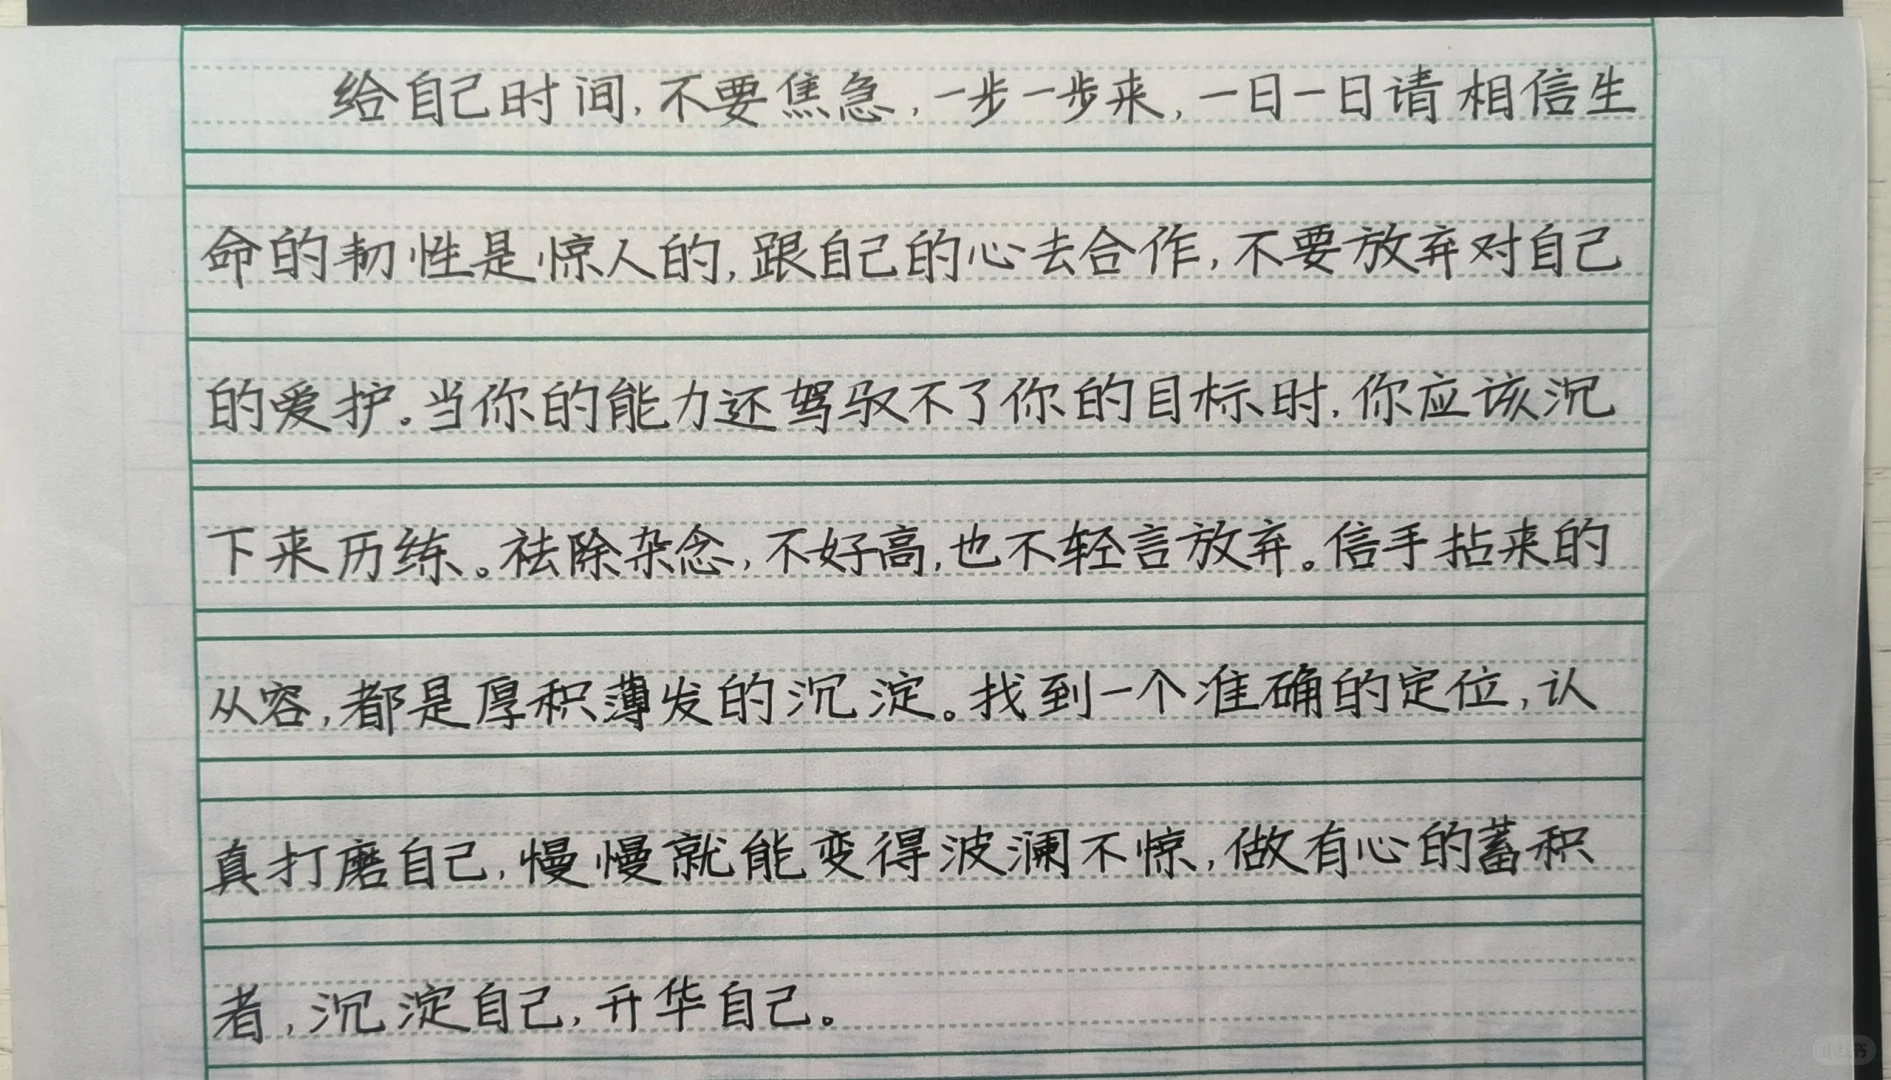 给自己时间,不要焦急,一步一步来,一日一日请相信生
命的韧性是惊人的,跟自己的心去合作,不要放弃对自己
的爱护。当你的能力还驾驭不了你的目标时,你应该沉
下来历练。祛除杂念,不好高,也不轻言放弃。信手拈来的
从容,都是厚积薄发的沉淀。找到一个准确的定位,认
真打磨自己,慢慢就能变得波澜不惊,做有心的蓄积
者,沉淀自己,升华自己。
小红书